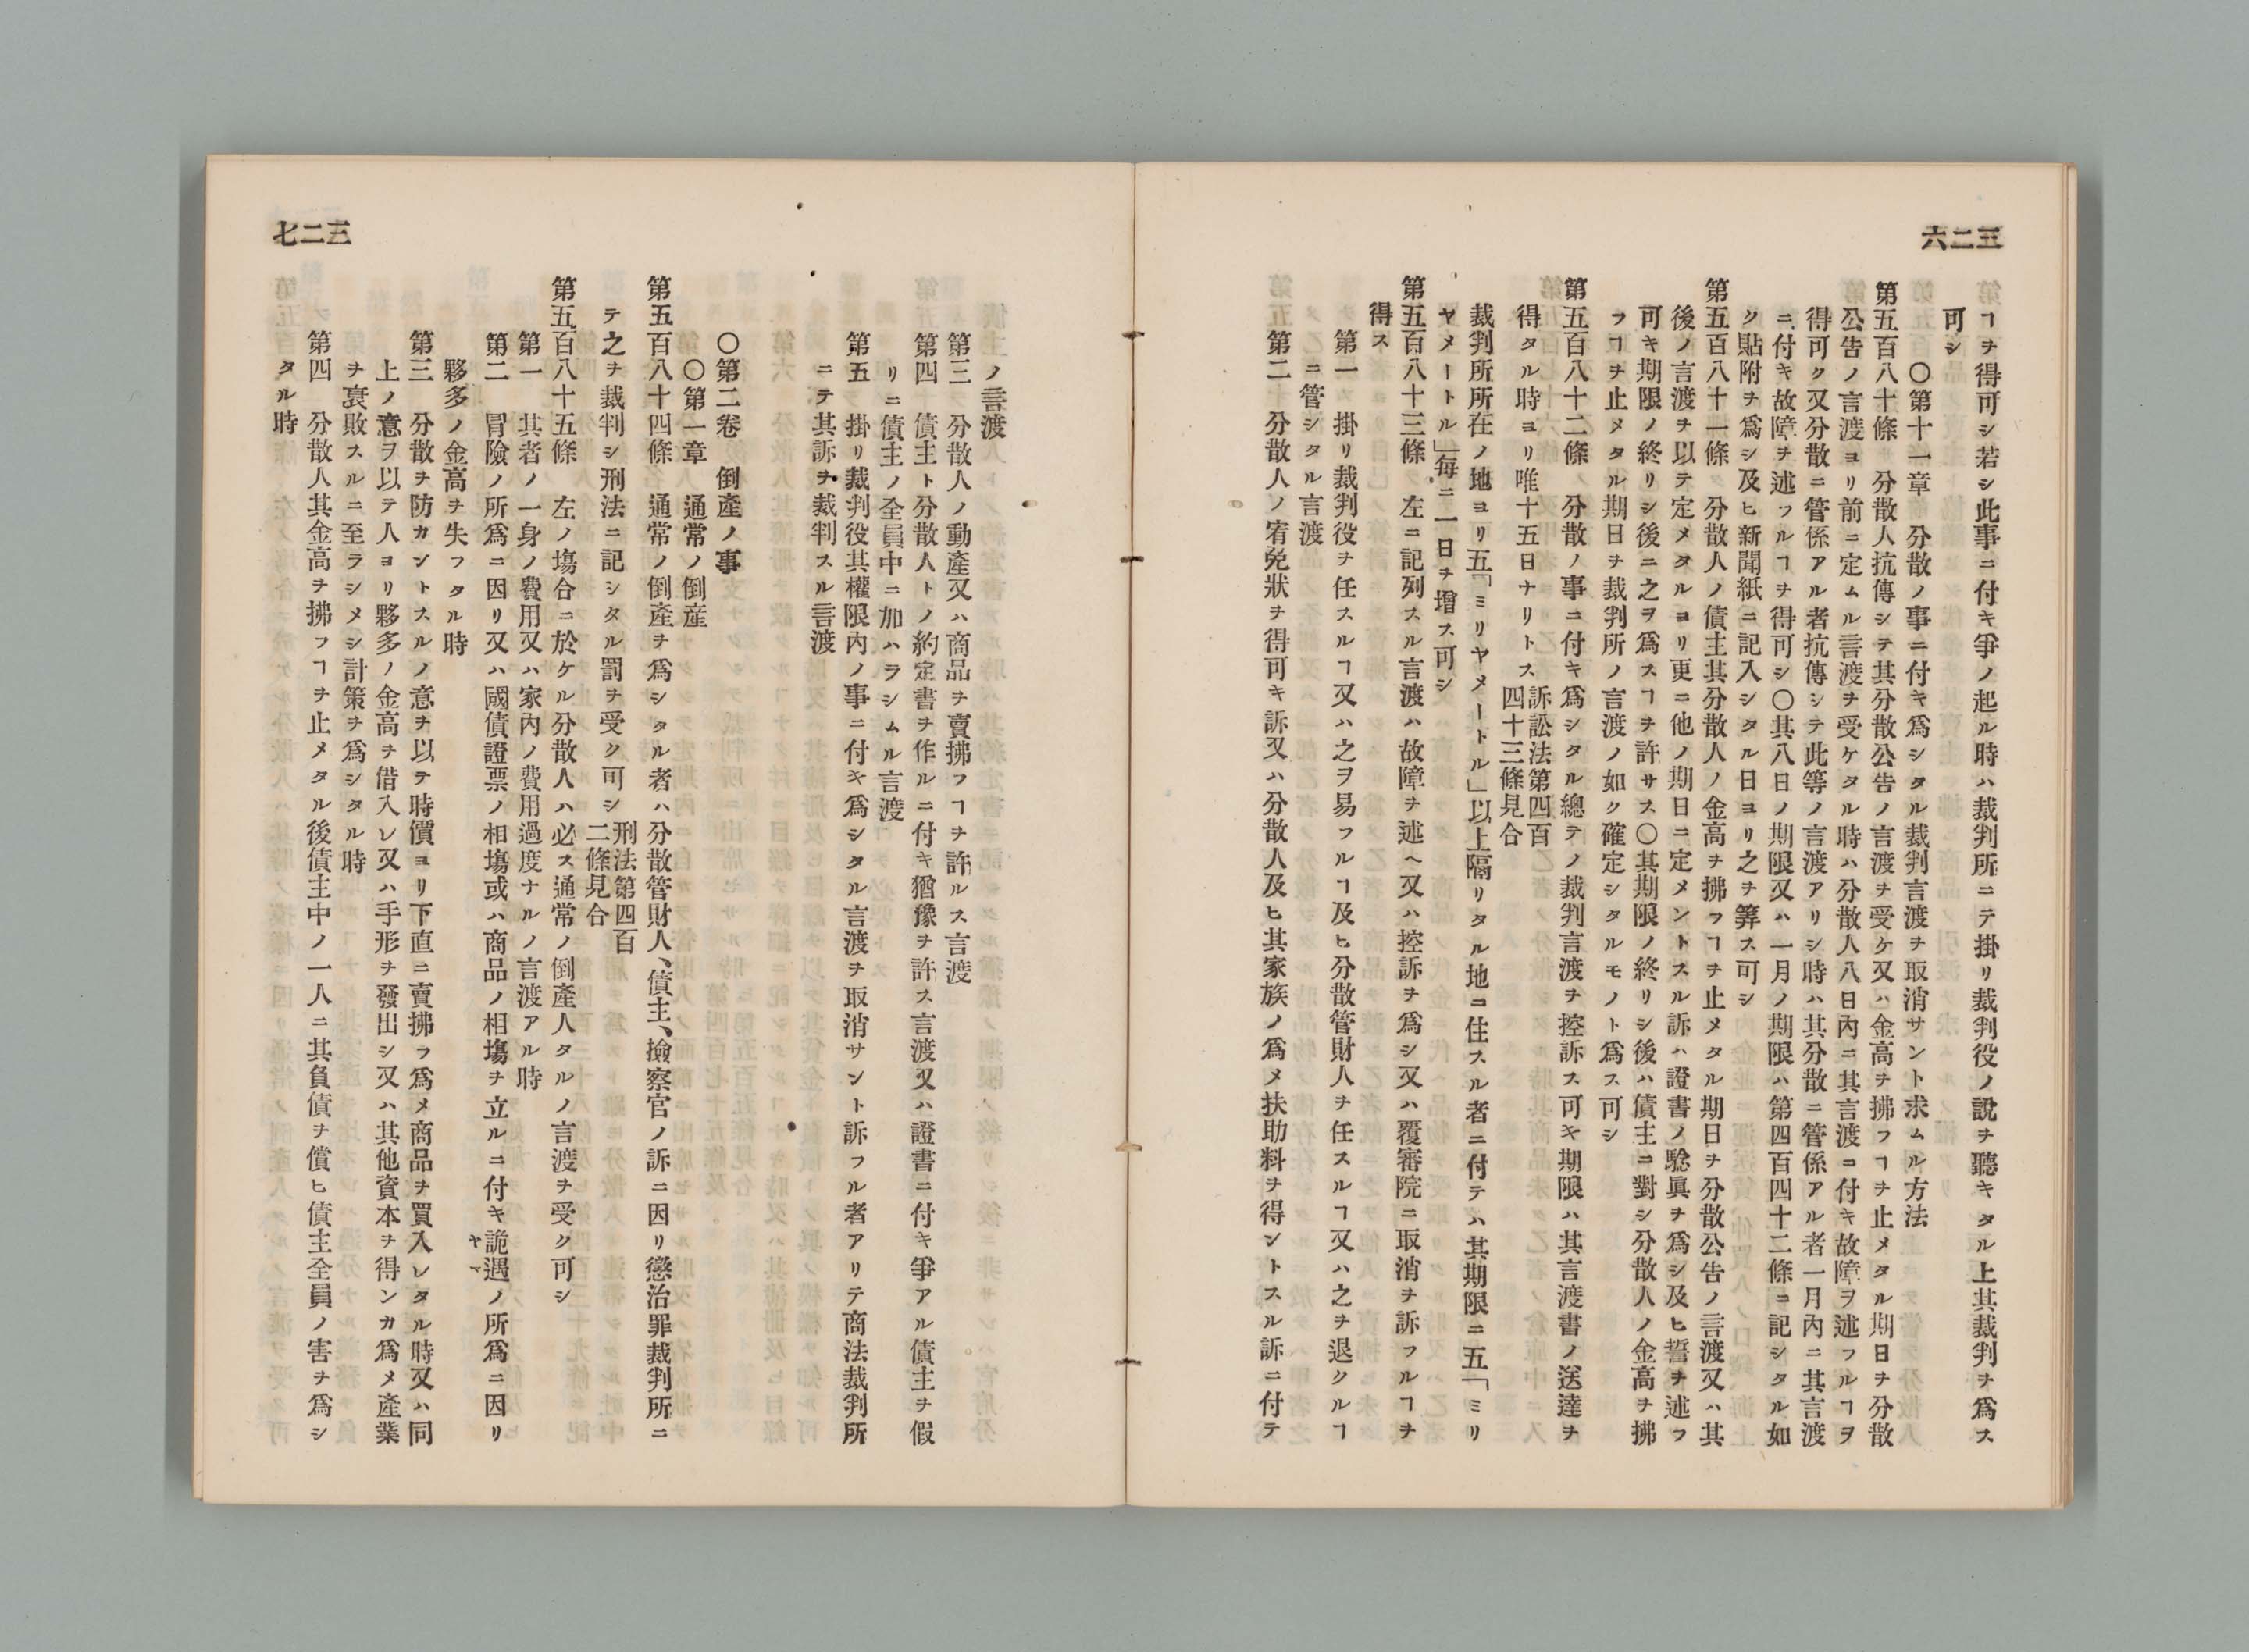 三二六
ヿヲ得可シ若シ此事ニ付キ爭ノ起ル時ハ裁判所ニテ掛リ裁判役ノ說ヲ聽キタル上其裁判ヲ爲ス
可シ
〇第十一章 分散ノ事ニ付キ爲シタル裁判言渡ヲ取消サント求ムル方法
第五百八十條 分散人抗傳シテ其分散公告ノ言渡ヲ受ケ又ハ金高ヲ拂フヿヲ止メタル期日ヲ分散
公告ノ言渡ヨリ前ニ定ムル言渡ヲ受ケタル時ハ分散人八日內ニ其言渡ニ付キ故障ヲ述フルヿヲ
得可ク又分散ニ管係アル者抗傳シテ此等ノ言渡アリシ時ハ其分散ニ管係アル者一月內ニ其言渡
ニ付キ故障ヲ述フルヿヲ得可シ〇其八日ノ期限又ハ一月ノ期限ハ第四百四十二條ニ記シタル如
ク貼附ヲ爲シ及ヒ新聞紙ニ記入シタル日ヨリ之ヲ算ス可シ
第五百八十一條 分散人ノ債主其分散人ノ金高ヲ拂フヿヲ止メタル期日ヲ分散公告ノ言渡又ハ其
後ノ言渡ヲ以テ定メタルヨリ更ニ他ノ期日ニ定メントスル訴ハ證書ノ驗眞ヲ爲シ及ヒ誓ヲ述フ
可キ期限ノ終リシ後ニ之ヲ爲スヿヲ許サス〇其期限ノ終リシ後ハ債主ニ對シ分散人ノ金高ヲ拂
フヿヲ止メタル期日ヲ裁判所ノ言渡ノ如ク確定シタルモノト爲ス可シ
第五百八十二條 分散ノ事ニ付キ爲シタル總テノ裁判言渡ヲ控訴ス可キ期限ハ其言渡書ノ送達ヲ
得タル時ヨリ唯十五日ナリトス 訴訟法第四百
四十三條見合
裁判所所在ノ地ヨリ五「ミリヤメートル」以上隔リタル地ニ住スル者ニ付テハ其期限ニ五「ミリ
ヤメートル」每ニ一日ヲ增ス可シ
第五百八十三條 左ニ記列スル言渡ハ故障ヲ述ヘ又ハ控訴ヲ爲シ又ハ覆審院ニ取消ヲ訴フルヿヲ
得ス
第一 掛リ裁判役ヲ任スルヿ又ハ之ヲ易フルヿ及ヒ分散管財人ヲ任スルヿ又ハ之ヲ退クルヿ
ニ管シタル言渡
第二 分散人ノ宥免狀ヲ得可キ訴又ハ分散人及ヒ其家族ノ爲メ扶助料ヲ得ントスル訴ニ付テ
三二七
ノ言渡
第三 分散人ノ動產又ハ商品ヲ賣拂フヿヲ許ルス言渡
第四 債主ト分散人トノ約定書ヲ作ルニ付キ猶豫ヲ許ス言渡又ハ證書ニ付キ爭アル債主ヲ假
リニ債主ノ全員中ニ加ハラシムル言渡
第五 掛リ裁判役其權限內ノ事ニ付キ爲シタル言渡ヲ取消サント訴フル者アリテ商法裁判所
ニテ其訴ヲ裁判スル言渡
〇第二卷 倒產ノ事
〇第一章 通常ノ倒產
第五百八十四條 通常ノ倒產ヲ爲シタル者ハ分散管財人、債主、撿察官ノ訴ニ因リ懲治罪裁判所ニ
テ之ヲ裁判シ刑法ニ記シタル罰ヲ受ク可シ 刑法第四百
二條見合
第五百八十五條 左ノ塲合ニ於ケル分散人ハ必ス通常ノ倒產人タルノ言渡ヲ受ク可シ
第一 其者ノ一身ノ費用又ハ家內ノ費用過度ナルノ言渡アル時
第二 冒險ノ所爲ニ因リ又ハ國債證票ノ相塲或ハ商品ノ相塲ヲ立ルニ付キ詭遇ノ所爲ニ因リ
ヤマ
夥多ノ金高ヲ失フタル時
第三 分散ヲ防カントスルノ意ヲ以テ時價ヨリ下直ニ賣拂フ爲メ商品ヲ買入レタル時又ハ同
上ノ意ヲ以テ人ヨリ夥多ノ金高ヲ借入レ又ハ手形ヲ發出シ又ハ其他資本ヲ得ンカ爲メ產業
ヲ衰敗スルニ至ラシメシ計策ヲ爲シタル時
第四 分散人其金高ヲ拂フヿヲ止メタル後債主中ノ一人ニ其負債ヲ償ヒ債主全員ノ害ヲ爲シ
タル時